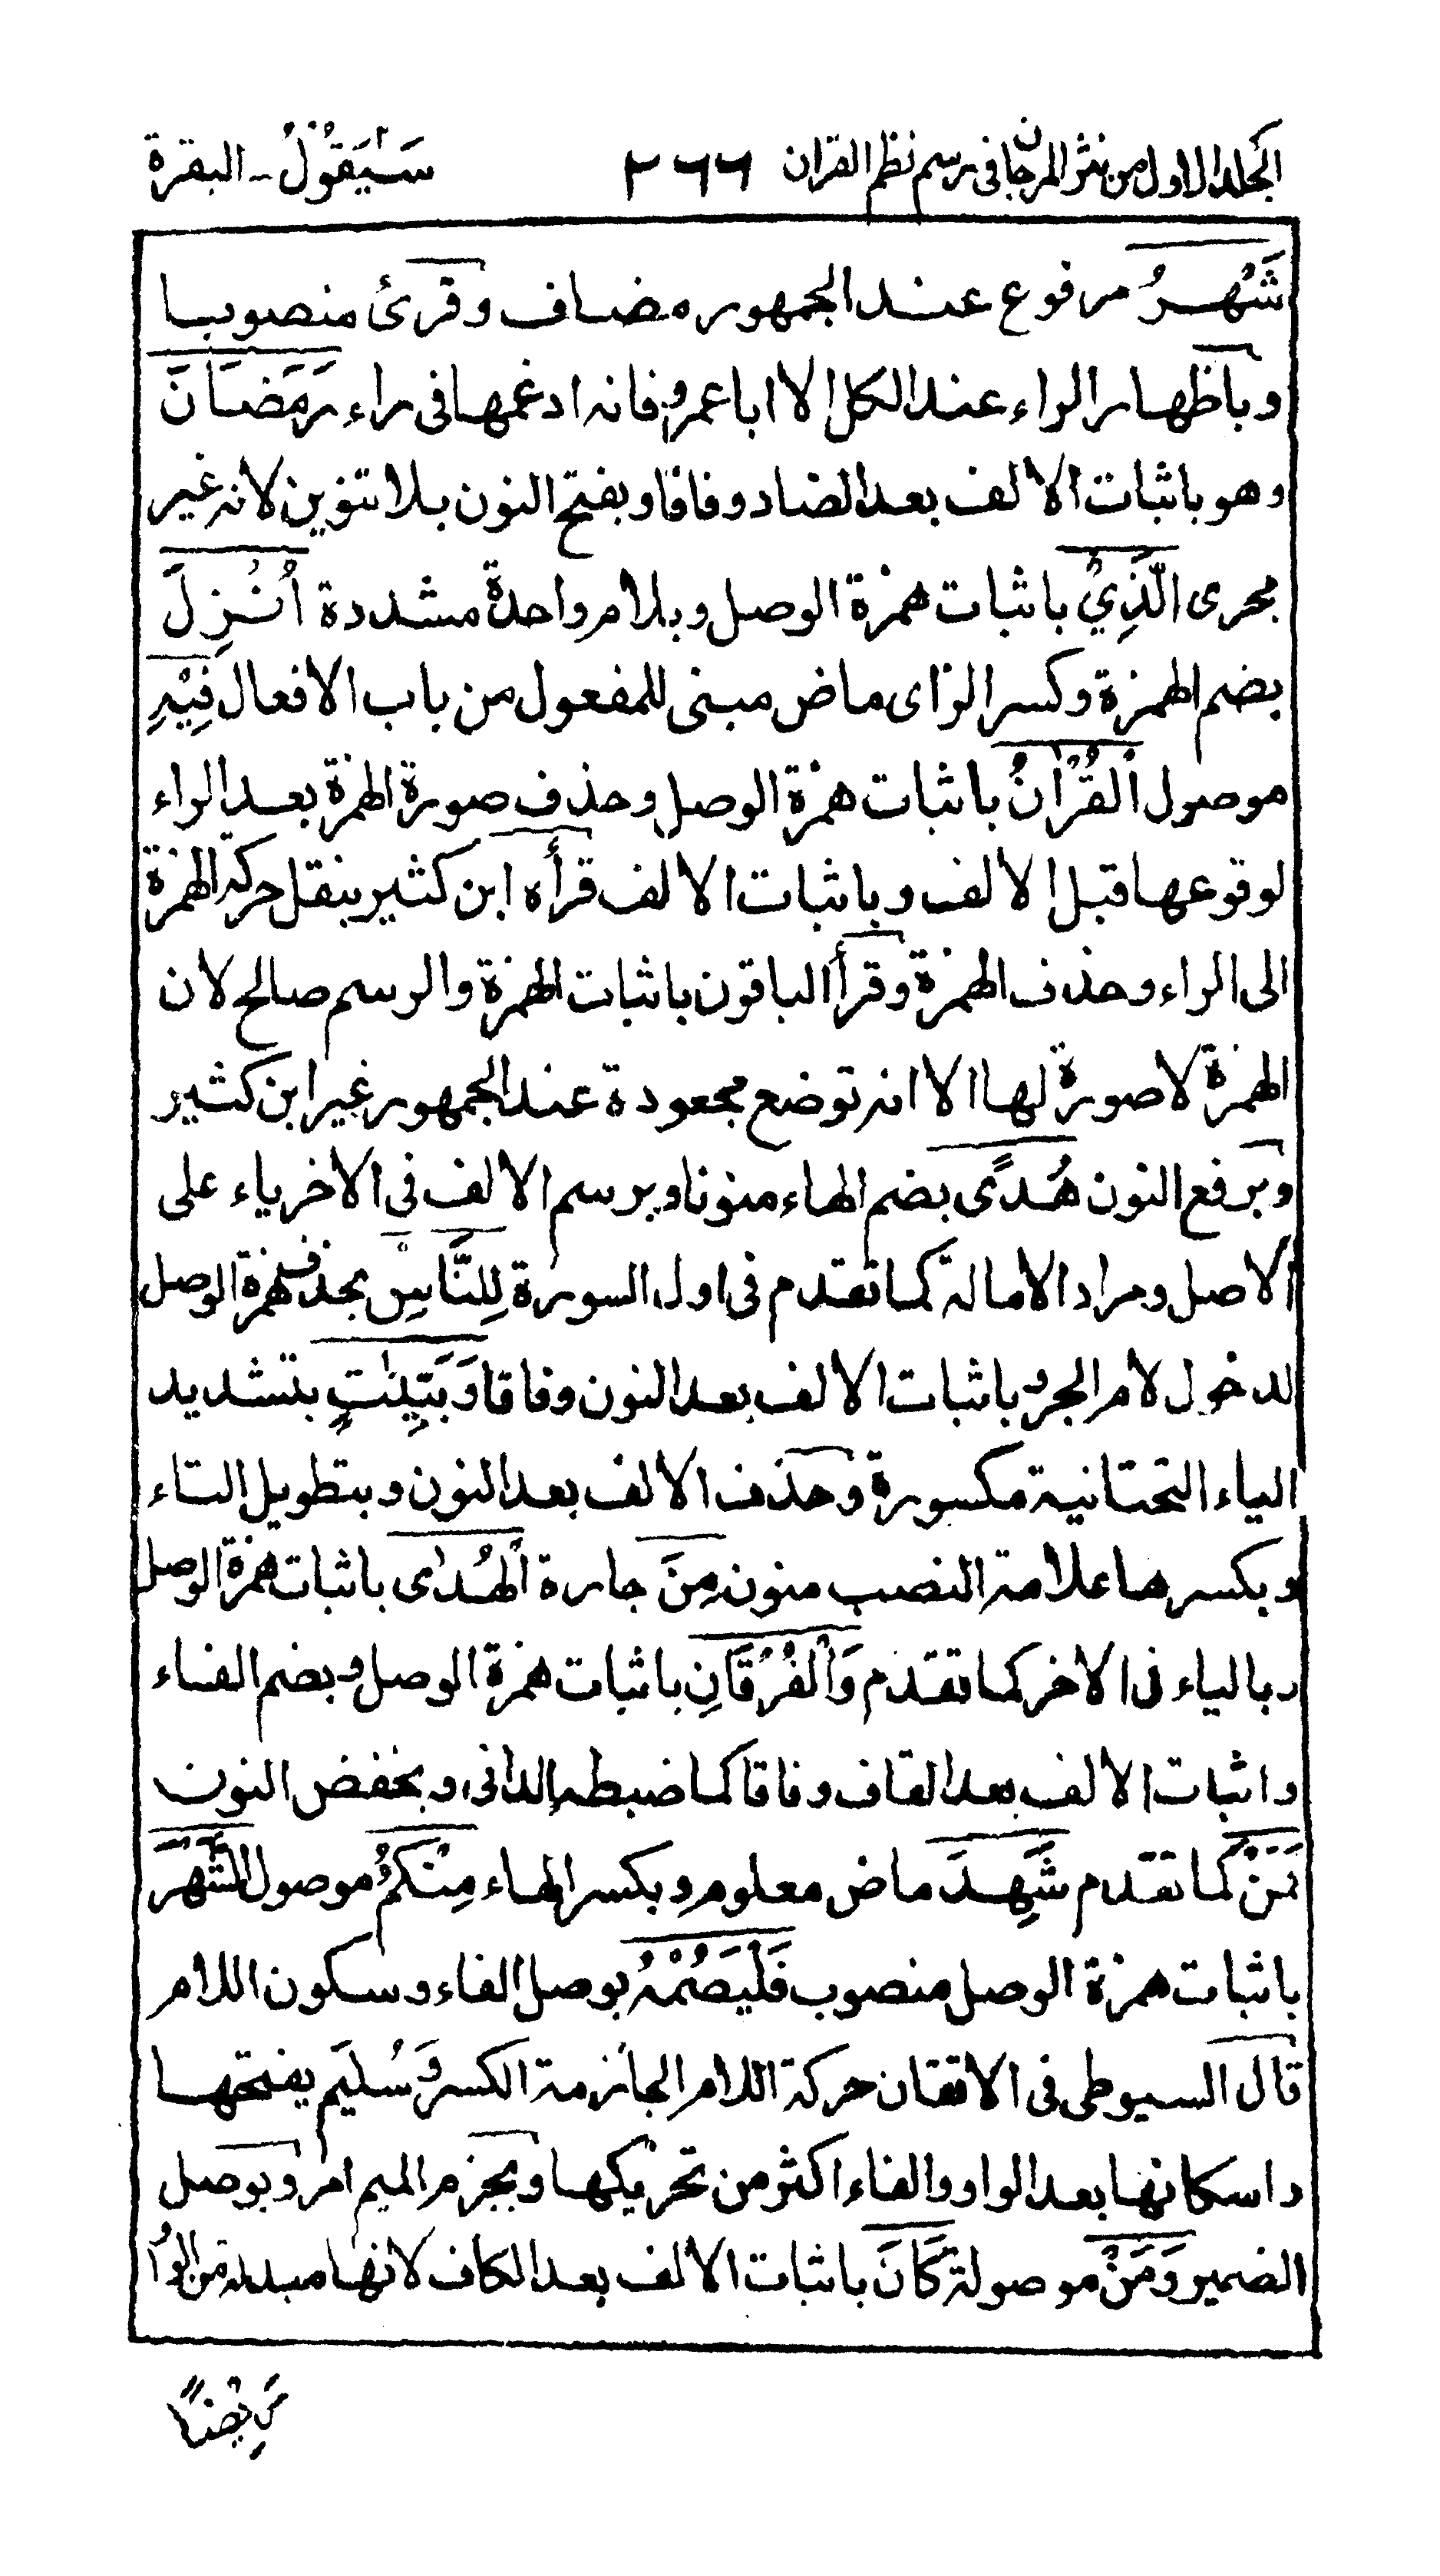 الجلد الاول من نثر المرجان فى رسم نظم القران ٢٦٦ سَيَقُوْلُ - البقرة
شَهْرُ مرفوع عند الجمهور مضاف وقرئ منصوبا
وباظهار الراء عند الكل الا ابا عمرو فانه ادغمها فى راء رَمَضَانَ
وهو باثبات الالف بعد الضاد وفاقا وبفتح النون بلا تنوين لانه غير
مجرى الَّذِيْ باثبات همزة الوصل وبلام واحدة مشددة اُنْزِلَ
بضم الهمزة وكسر الزاى ماض مبنى للمفعول من باب الافعال فِيْهِ
موصول الْقُرْاٰنُ باثبات همزة الوصل وحذف صورة الهمزة بعد الراء
لوقوعها قبل الالف وباثبات الالف قرأه ابن كثير بنقل حركة الهمزة
الى الراء وحذف الهمزة وقرأ الباقون باثبات الهمزة والرسم صالح لان
الهمزة لا صورة لها الا انه توضع مجعودة عند الجمهور غير ابن كثير
وبرفع النون هُدًى بضم الهاء منونا وبرسم الالف فى الاخر ياء على
الاصل ومراد الامالة كما تقدم فى اول السورة لِلنَّاسِ بحذف همزة الوصل
لدخول لام الجر وباثبات الالف بعد النون وفاقا وَبَيِّنٰتٍ بتشديد
الياء التحتانية مكسورة وحذف الالف بعد النون وبتطويل التاء
وبكسرها علامة النصب منون مِنَ جارة الْهُدٰى باثبات همزة الوصل
وبالياء فى الاخر كما تقدم وَالْفُرْقَانِ باثبات همزة الوصل وبضم الفاء
واثبات الالف بعد القاف وفاقا كما ضبطه الدانى وبخفض النون
فَمَنْ كما تقدم شَهِدَ ماض معلوم وبكسر الهاء مِنْكُمُ موصول الشَّهْرَ
باثبات همزة الوصل منصوب فَلْيَصُمْهُ بوصل الفاء وسكون اللام
قال السيوطى فى الاتقان حركة اللام الجازمة الكسر وَسُلَيم يفتحها
واسكانها بعد الواو والفاء اكثر من تحريكها وبجزم الميم امر وبوصل
الضمير وَمَنْ موصولة كَانَ باثبات الالف بعد الكاف لانها مبدلة من الواو
مَرِيْضًا